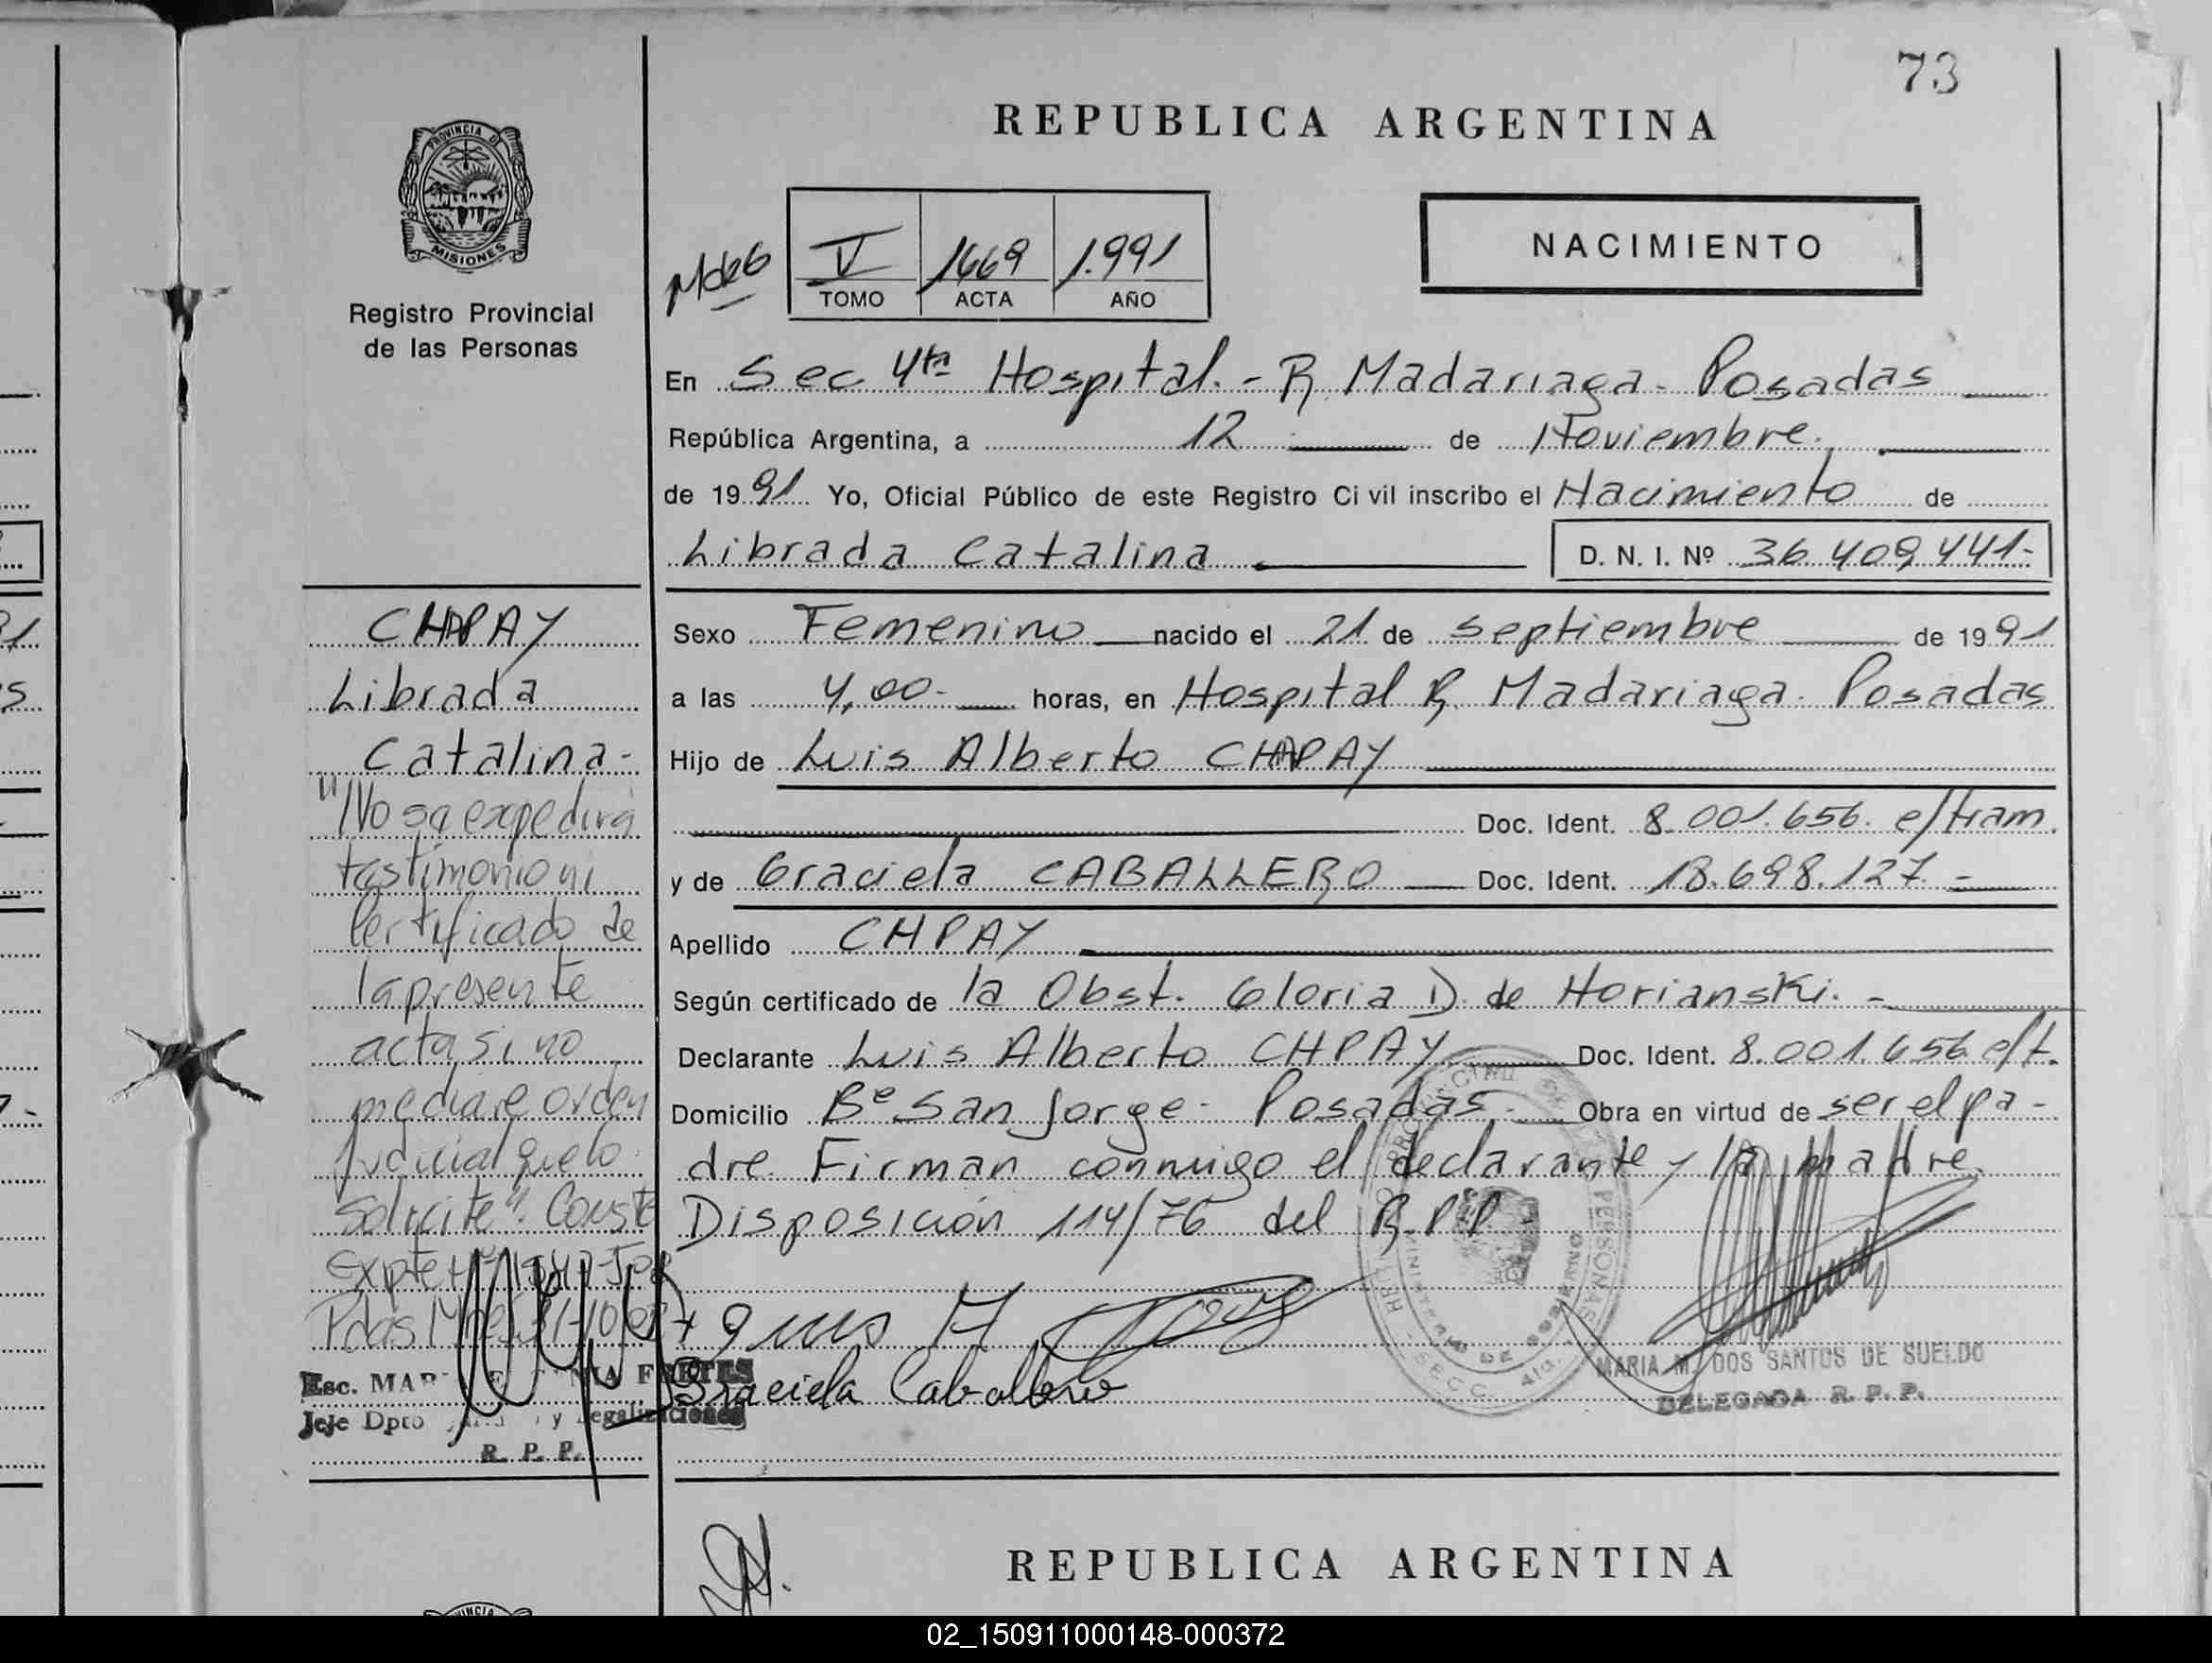 73
PROVINCIA DE
MISIONES
Registro Provincial
de las Personas
REPUBLICA ARGENTINA
V 1669 1.991
TOMO ACTA AÑO
NACIMIENTO
En Sec 4ta Hospital.- R. Madariaga- Posadas
República Argentina, a 12 de Noviembre.
de 1991 Yo, Oficial Público de este Registro Civil inscribo el Nacimiento de
Librada Catalina D. N. I. Nº 36.409.441-
Sexo Femenino nacido el 21 de septiembre de 1991
a las 4,00- horas, en Hospital R. Madariaga- Posadas
Hijo de Luis Alberto CHAPAY
Doc. Ident. 8.001.656. e/tram.
y de Graciela CABALLERO Doc. Ident. 18.698.127-
Apellido CHPAY
Según certificado de la Obst. Gloria D. de Horianski.-
Declarante Luis Alberto CHPAY Doc. Ident. 8.001.656 e/t.
Domicilio Bº San Jorge- Posadas- Obra en virtud de ser el pa-
dre. Firman conmigo el declarante y la madre.
Disposición 114/76 del R.P.P-
Graciela Caballero
MARIA M. DOS SANTOS DE SUELDO
DELEGADA R. P. P.
CHAPAY
Librada
Catalina-
"No se expedirá
testimonio ni
Certificado de
la presente
acta si no
mediare orden
Judicial que lo
Solicite". Conste
Expte
Pdas
Esc. FRETES
Jefe Dpto y Legalizaciones
R. P. P.
REPUBLICA ARGENTINA
02_150911000148-000372